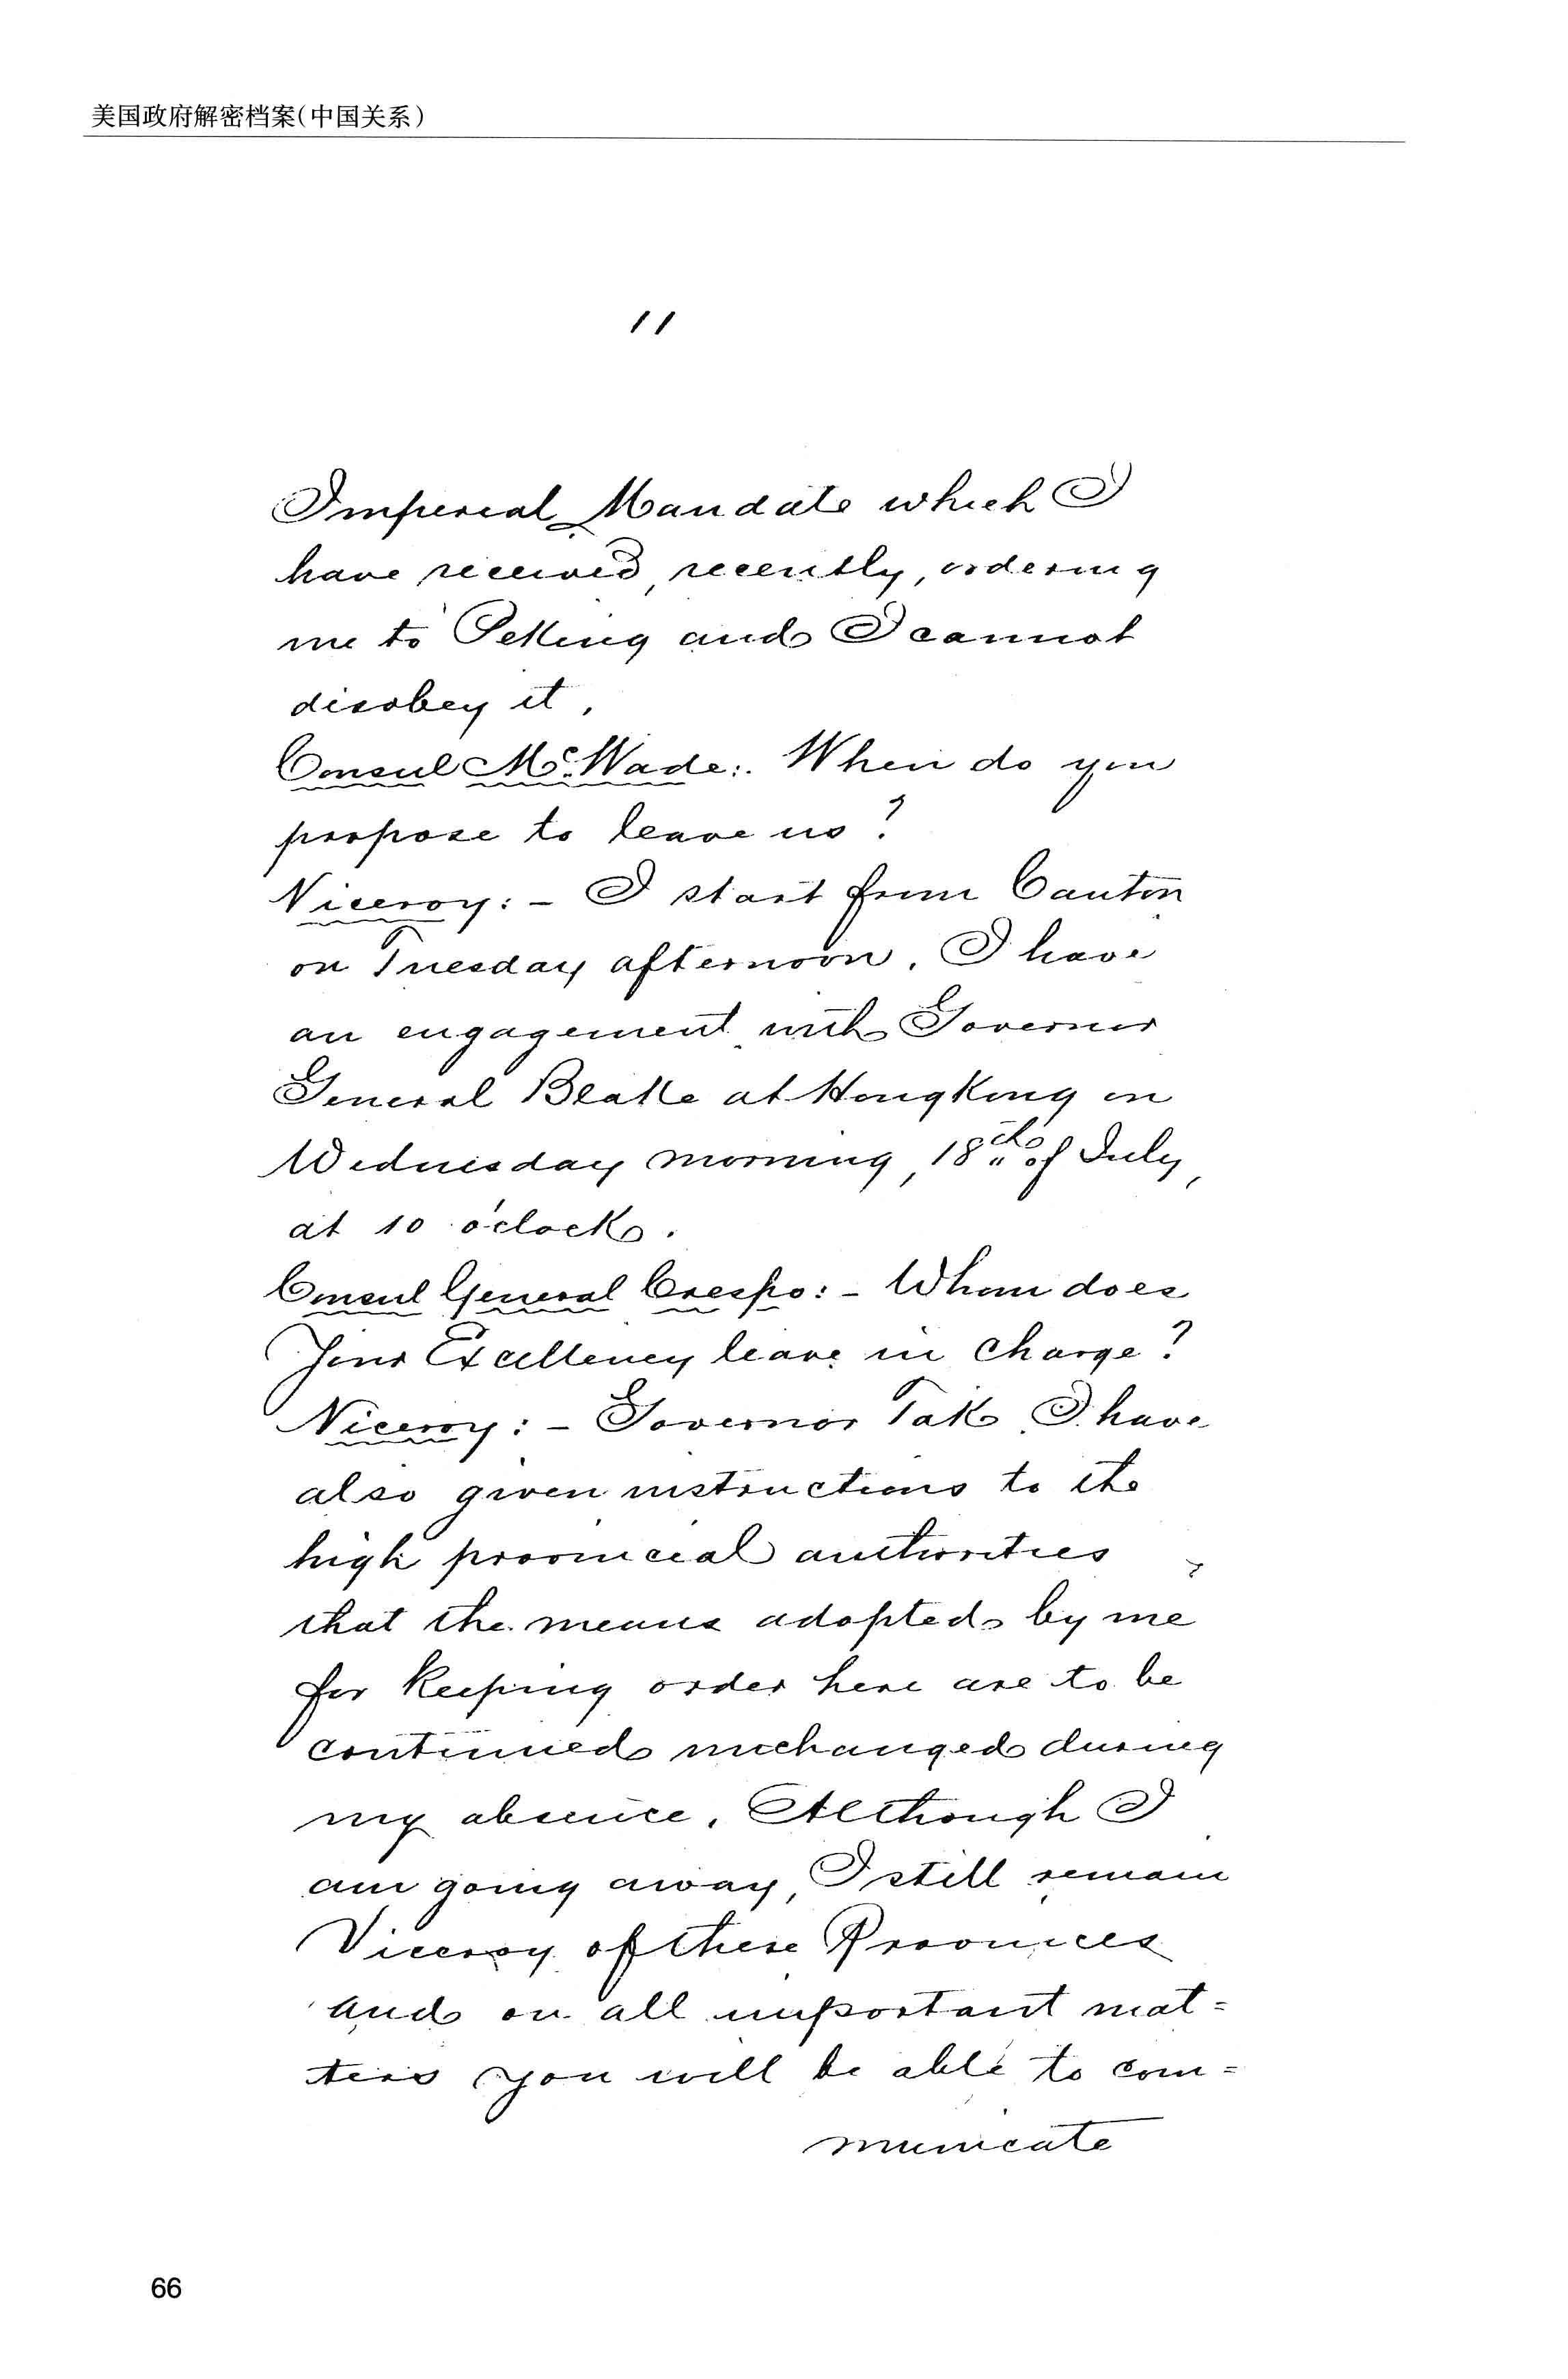 美国政府解密档案(中国关系)
11
Imperial Mandate which I
have received, recently, ordering
me to Peking and I cannot
disobey it.
Consul McWade:. When do you
propose to leave us?
Viceroy: - I start from Canton
on Tuesday afternoon. I have
an engagement with Governor
General Blake at Hongkong on
Wednesday morning, 18th of July,
at 10 o'clock.
Consul General Crespo: - Whom does
Your Excellency leave in charge?
Viceroy: - Governor Tak. I have
also given instructions to the
high provincial authorities
that the means adopted by me
for keeping order here are to be
continued unchanged during
my absence. Although I
am going away, I still remain
Viceroy of these Provinces
and on all important mat=
ters you will be able to com=
municate
66